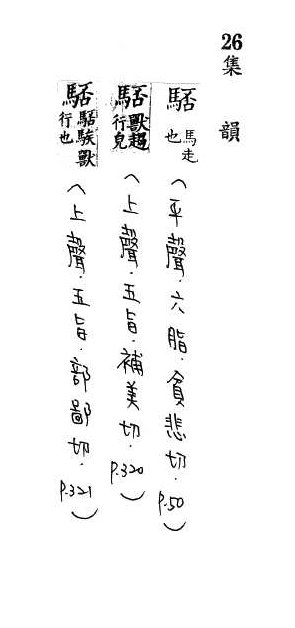 26 集韻
⿰馬否 馬走也 (平聲·六脂·貧悲切·P.50)
⿰馬否 獸趨行皃 (上聲·五旨·補美切·P.320)
⿰馬否 ⿰馬否騃獸行也 (上聲·五旨·部鄙切·P.321)